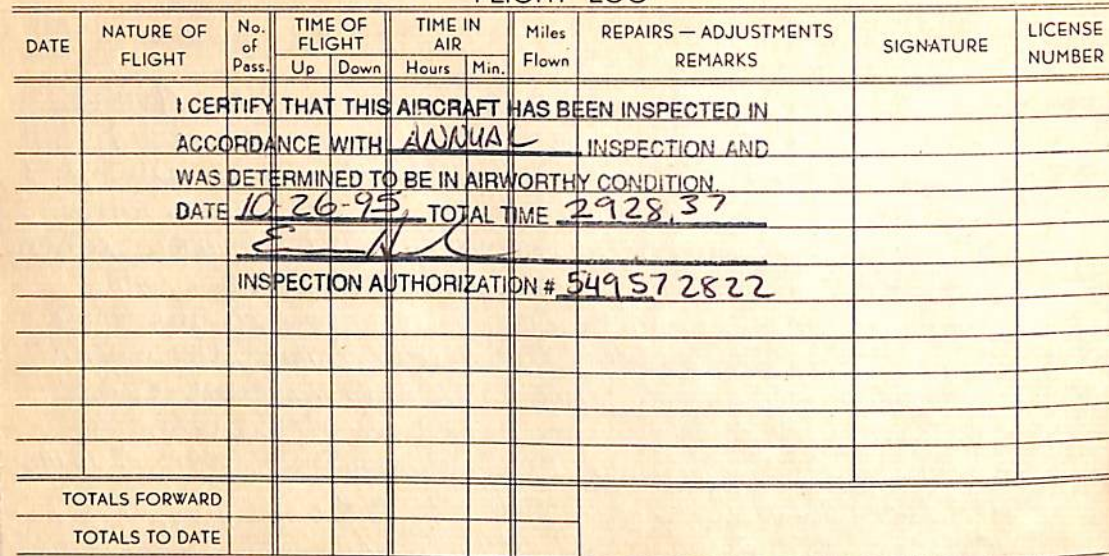 FLIGHT LOG
DATE
NATURE OF FLIGHT
No. of Pass.
TIME OF FLIGHT
Up Down
TIME IN AIR
Hours Min.
Miles Flown
REPAIRS — ADJUSTMENTS REMARKS
SIGNATURE
LICENSE NUMBER
I CERTIFY THAT THIS AIRCRAFT HAS BEEN INSPECTED IN
ACCORDANCE WITH ANNUAL INSPECTION AND
WAS DETERMINED TO BE IN AIRWORTHY CONDITION.
DATE 10-26-95 TOTAL TIME 2928.37
INSPECTION AUTHORIZATION # 549572822
TOTALS FORWARD
TOTALS TO DATE